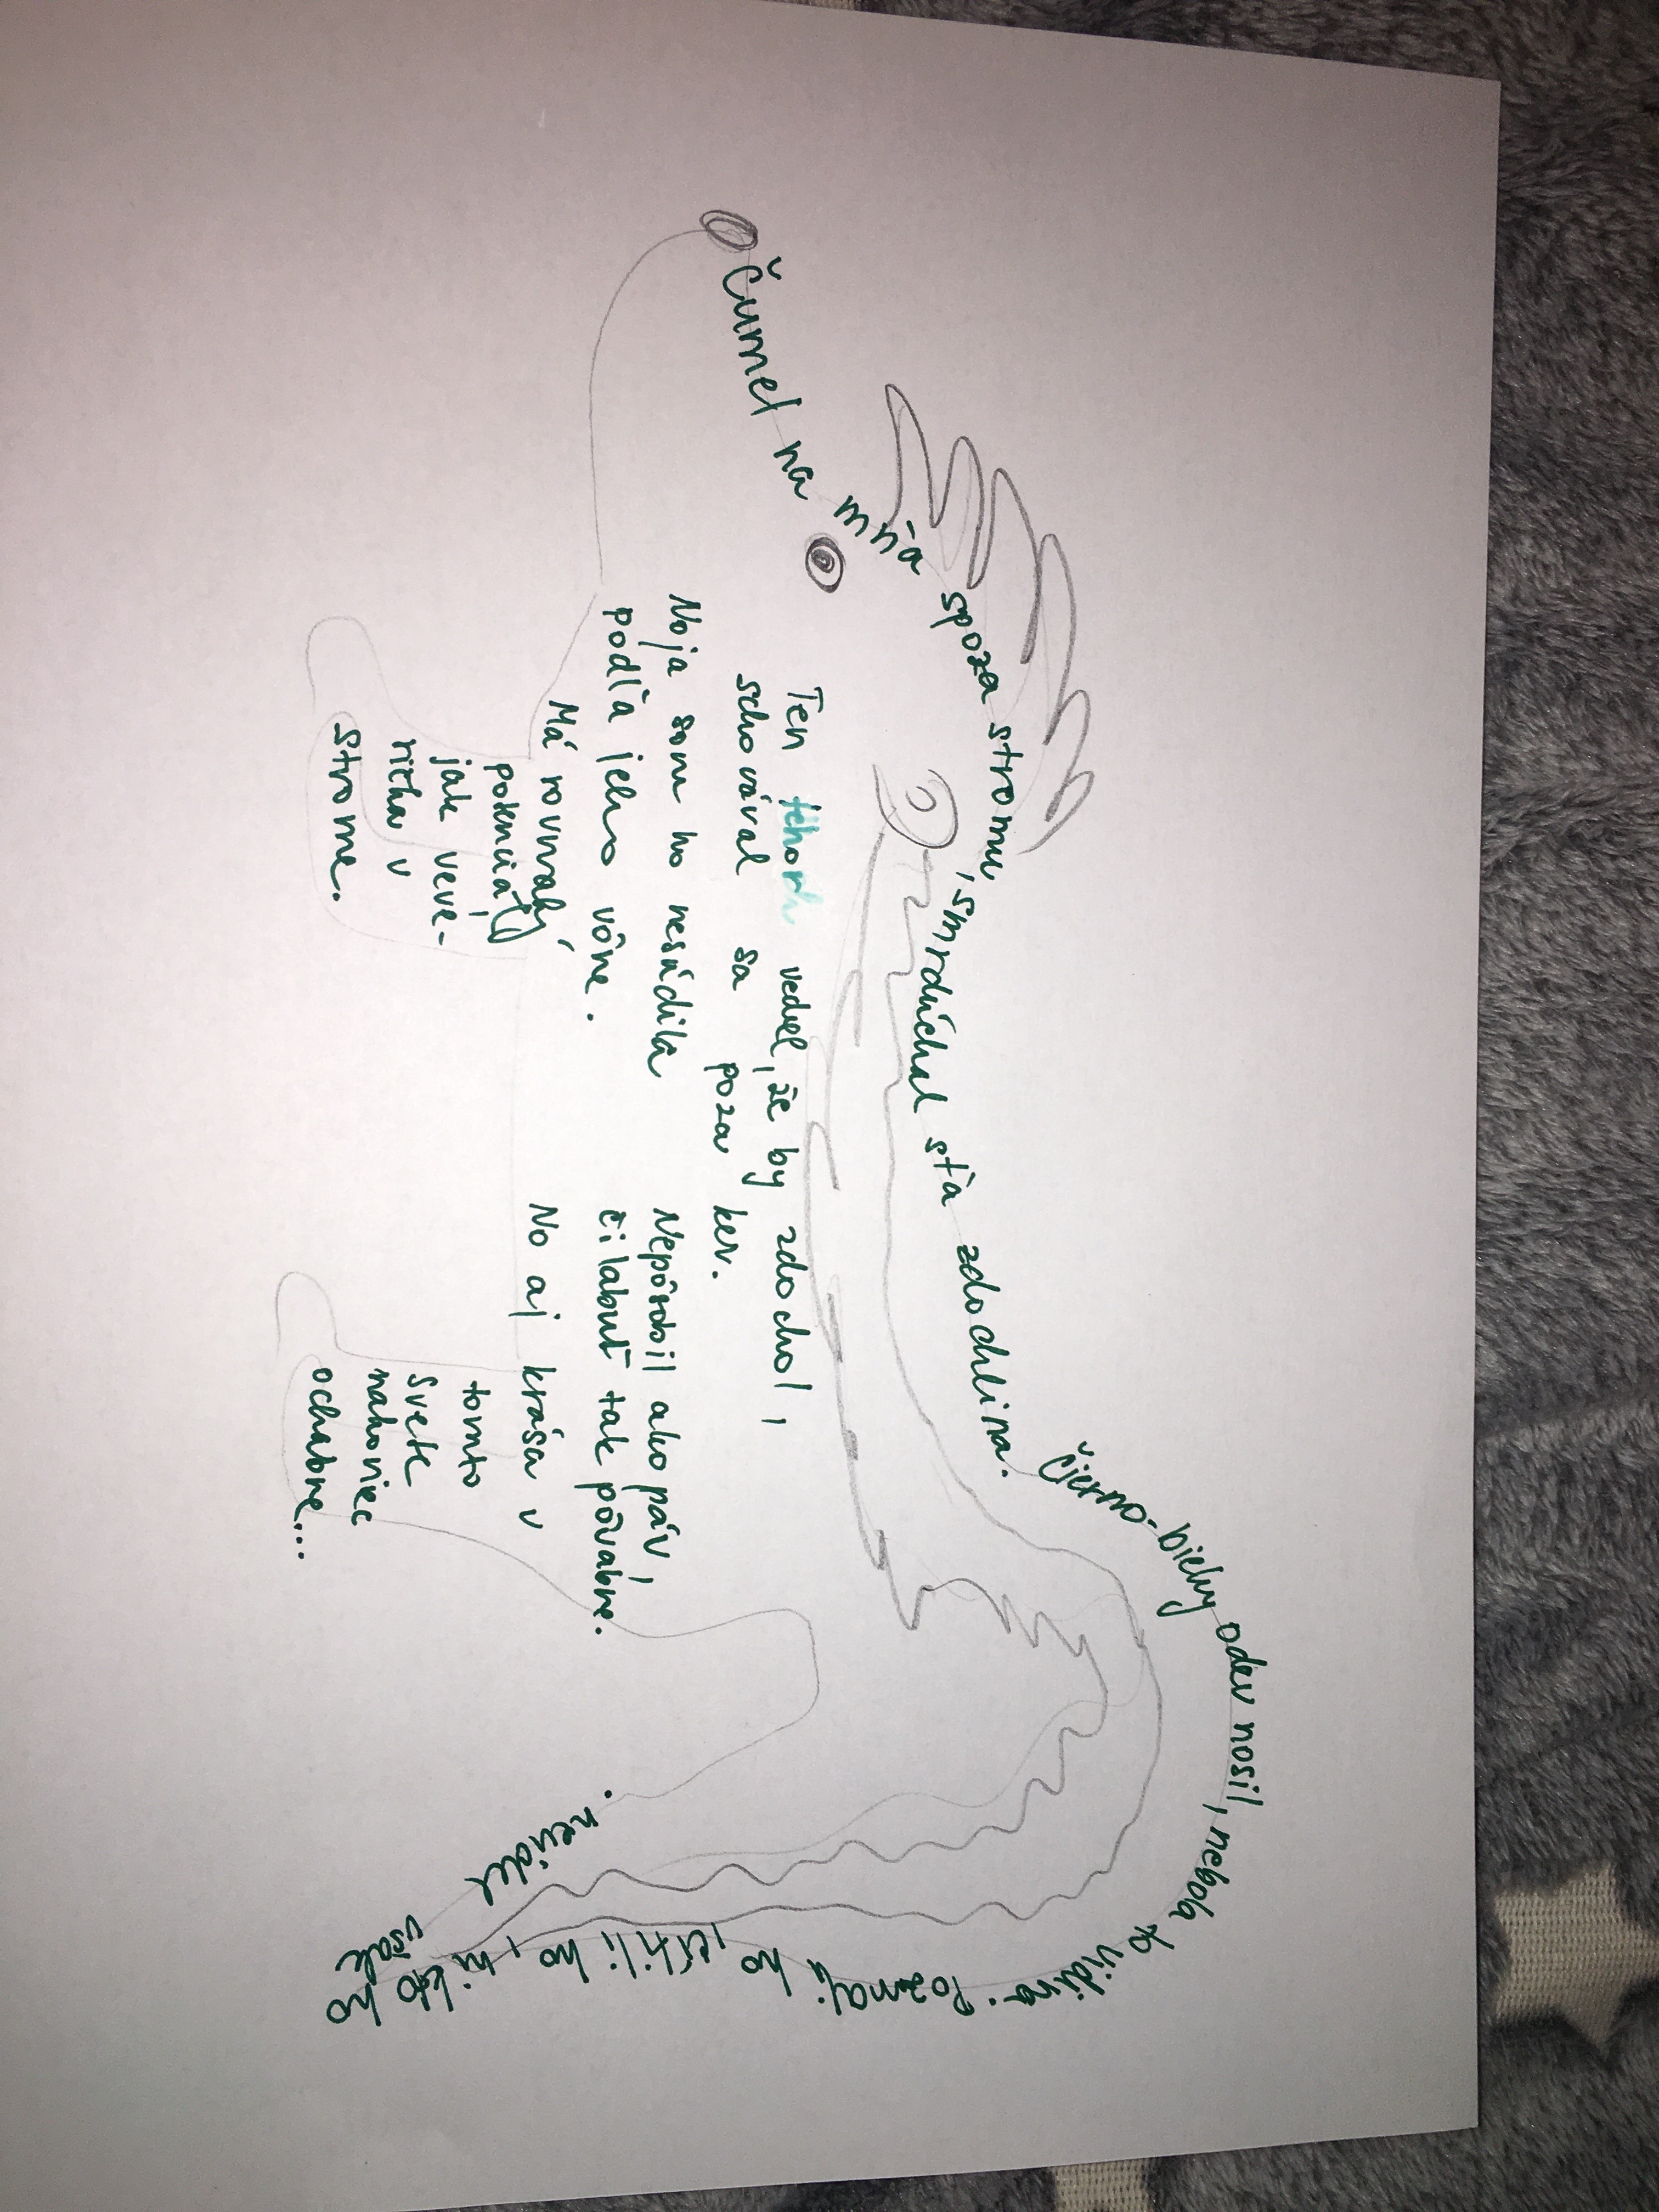 Čumel na mňa spoza stromu, smrdúchal sťa zdochlina.
Čierno-biely odev nosil, nebola to vidina. Poznali ho, ctili ho, nikto ho
však
nevidel.
Ten tchor vedel, že by zdochol,
schovával sa poza ker.
No ja som ho nesúdila
podľa jeho vône.
Má rovnaký
potenciál,
jak veve-
rička v
strome.
Nepôsobil ako páv,
či labuť tak pôvabne.
No aj krása v
tomto
svete
nakoniec
ochabne...